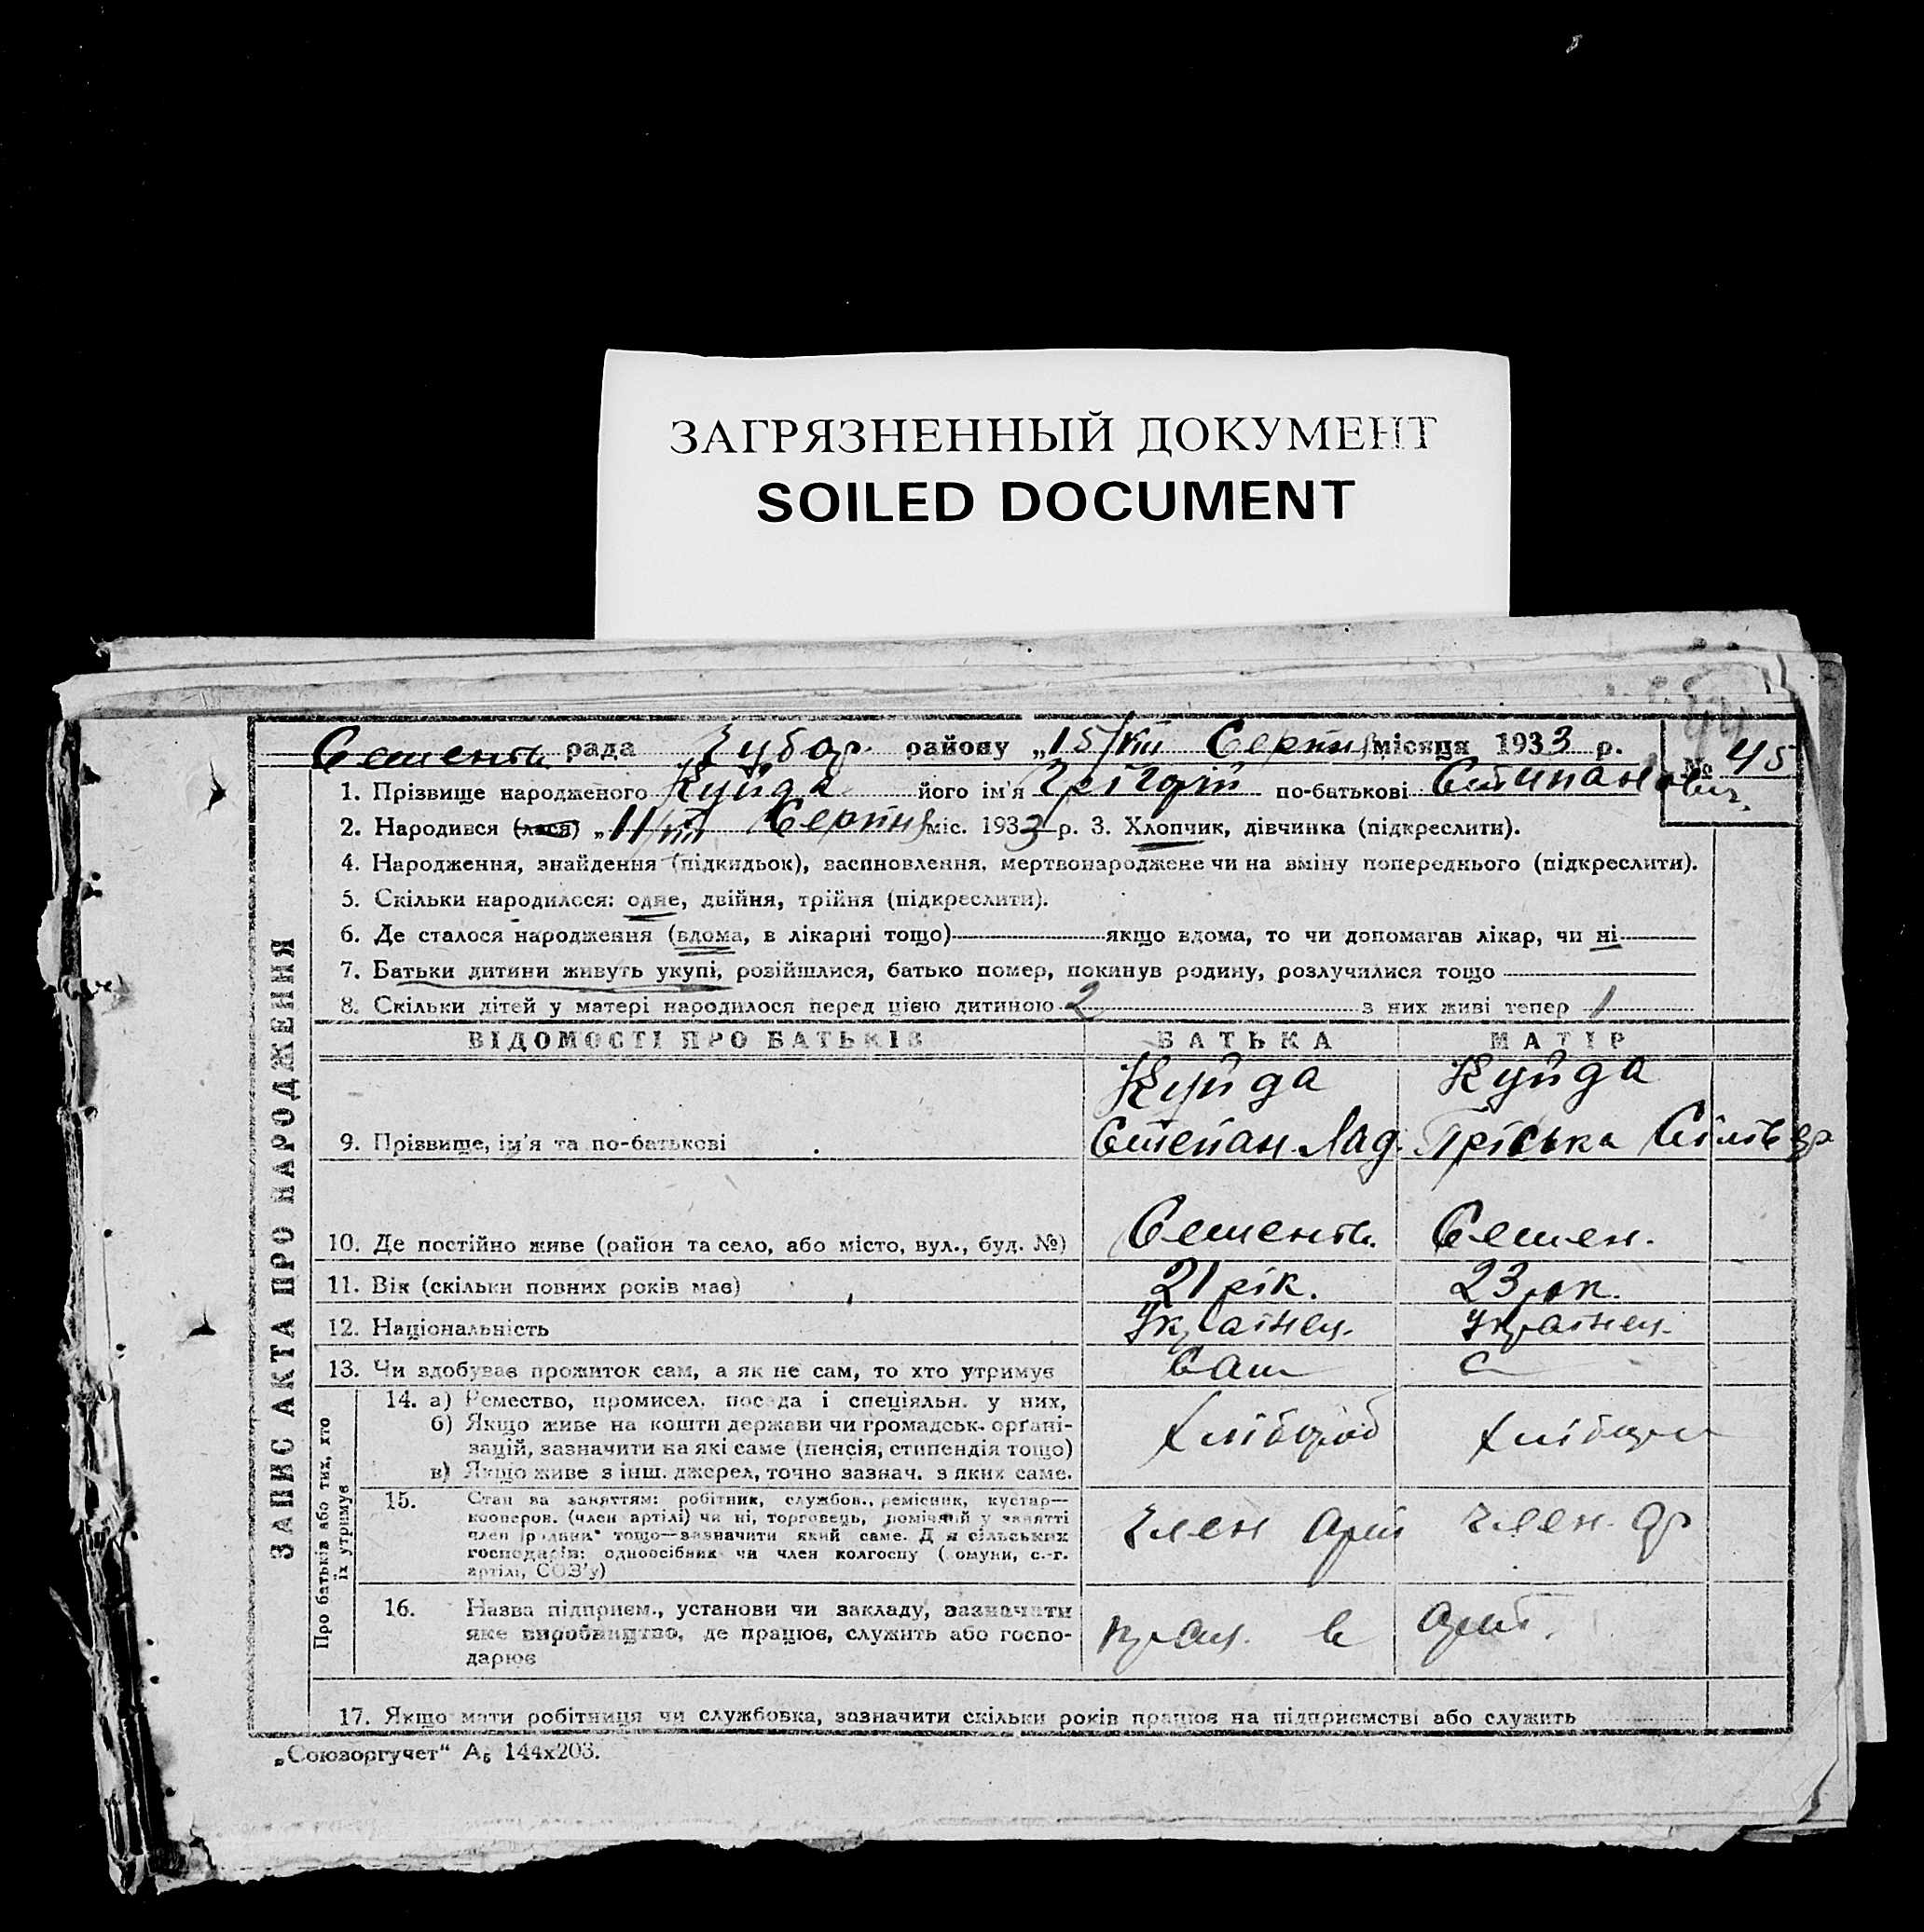 ЗАГРЯЗНЕННЫЙ ДОКУМЕНТ
SOILED DOCUMENT
Семенів. рада Чубар. району „15/VIII Серпня місяця 1933 р.
№ 45
1. Прізвище народженого Куйда його ім'я Грігорій по-батькові Стипанович.
2. Народився (лася) „11/VIII Серпня міс. 1933 р. 3. Хлопчик, дівчинка (підкреслити).
4. Народження, знайдення (підкидьок), васиновлення, мертвонароджене чи на вміну попереднього (підкреслити).
5. Скільки народилося: одне, двійня, трійня (підкреслити).
6. Де сталося народження (вдома, в лікарні тощо) якщо вдома, то чи допомагав лікар, чи ні
7. Батьки дитини живуть укупі, розійшлися, батько помер, покинув родину, розлучилися тощо
8. Скільки дітей у матері народилося перед цією дитиною 2 з них живі тепер 1
ЗАПИС АКТА ПРО НАРОДЖЕННЯ
ВІДОМОСТІ ПРО БАТЬКІВ БАТЬКА МАТІР
Куйда Куйда
9. Прізвище, ім'я та по-батькові Степан Лад. Пріська
10. Де постійно живе (район та село, або місто, вул., буд. №) Семенів. Семен.
11. Вік (скільки повних років має) 21 рік. 23 рок.
12. Національність Українец. Українец.
13. Чи здобуває прожиток сам, а як не сам, то хто утримує Сам С
Про батьків або тих, хто їх утримує
14. а) Ремество, промисел, посада і спеціяльн. у них,
б) Якщо живе на кошти держави чи громадськ. орґані-
зацій, зазначити на які саме (пенсія, стипендія тощо) Хлібороб
в) Якщо живе з інш. джерел, точно зазнач. з яких саме.
15. Стан за заняттям: робітник, службов., ремісник, кустар—
кооперов. (член артілі) чи ні, торговець, помічний у занятті
член родини тощо—зазначити який саме. Для сільських Член Арті Член. Ар
господарів: одноосібник чи член колгоспу (комуни, с.-г.
артілі, СОЗ'у)
16. Назва підприєм., установи чи закладу, зазначити
яке виробництво, де працює, служить або госпо- Працз. в Артіл.
дарює
17. Якщо мати робітниця чи службовка, зазначити скільки років працює на підприємстві або служить
„Союзоргучет“ А₅ 144х203.